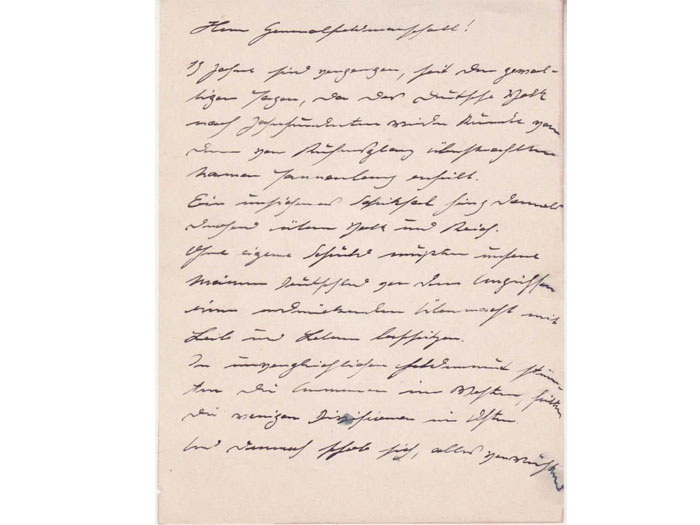 Herr Generalfeldmarschall!
19 Jahre sind vergangen, seit den gewal-
tigen Tagen, da das deutsche Volk
nach Jahrhunderten wieder Kunde von
dem von Ruhmesglanz überstrahlten
Namen Tannenberg erhielt.
Ein unsicheres Schicksal hing damals
drohend über Volk und Reich.
Ohne eigene Schuld mußten unsere
Männer Deutschland vor dem Angriffe
einer erdrückenden Übermacht mit
Leib und Leben beschützen.
In unvergleichlichem Heldenmut stürm-
ten die Armeen im Westen, hielten
die wenigen Divisionen im Osten
und dennoch schob sich, alles verwüstend